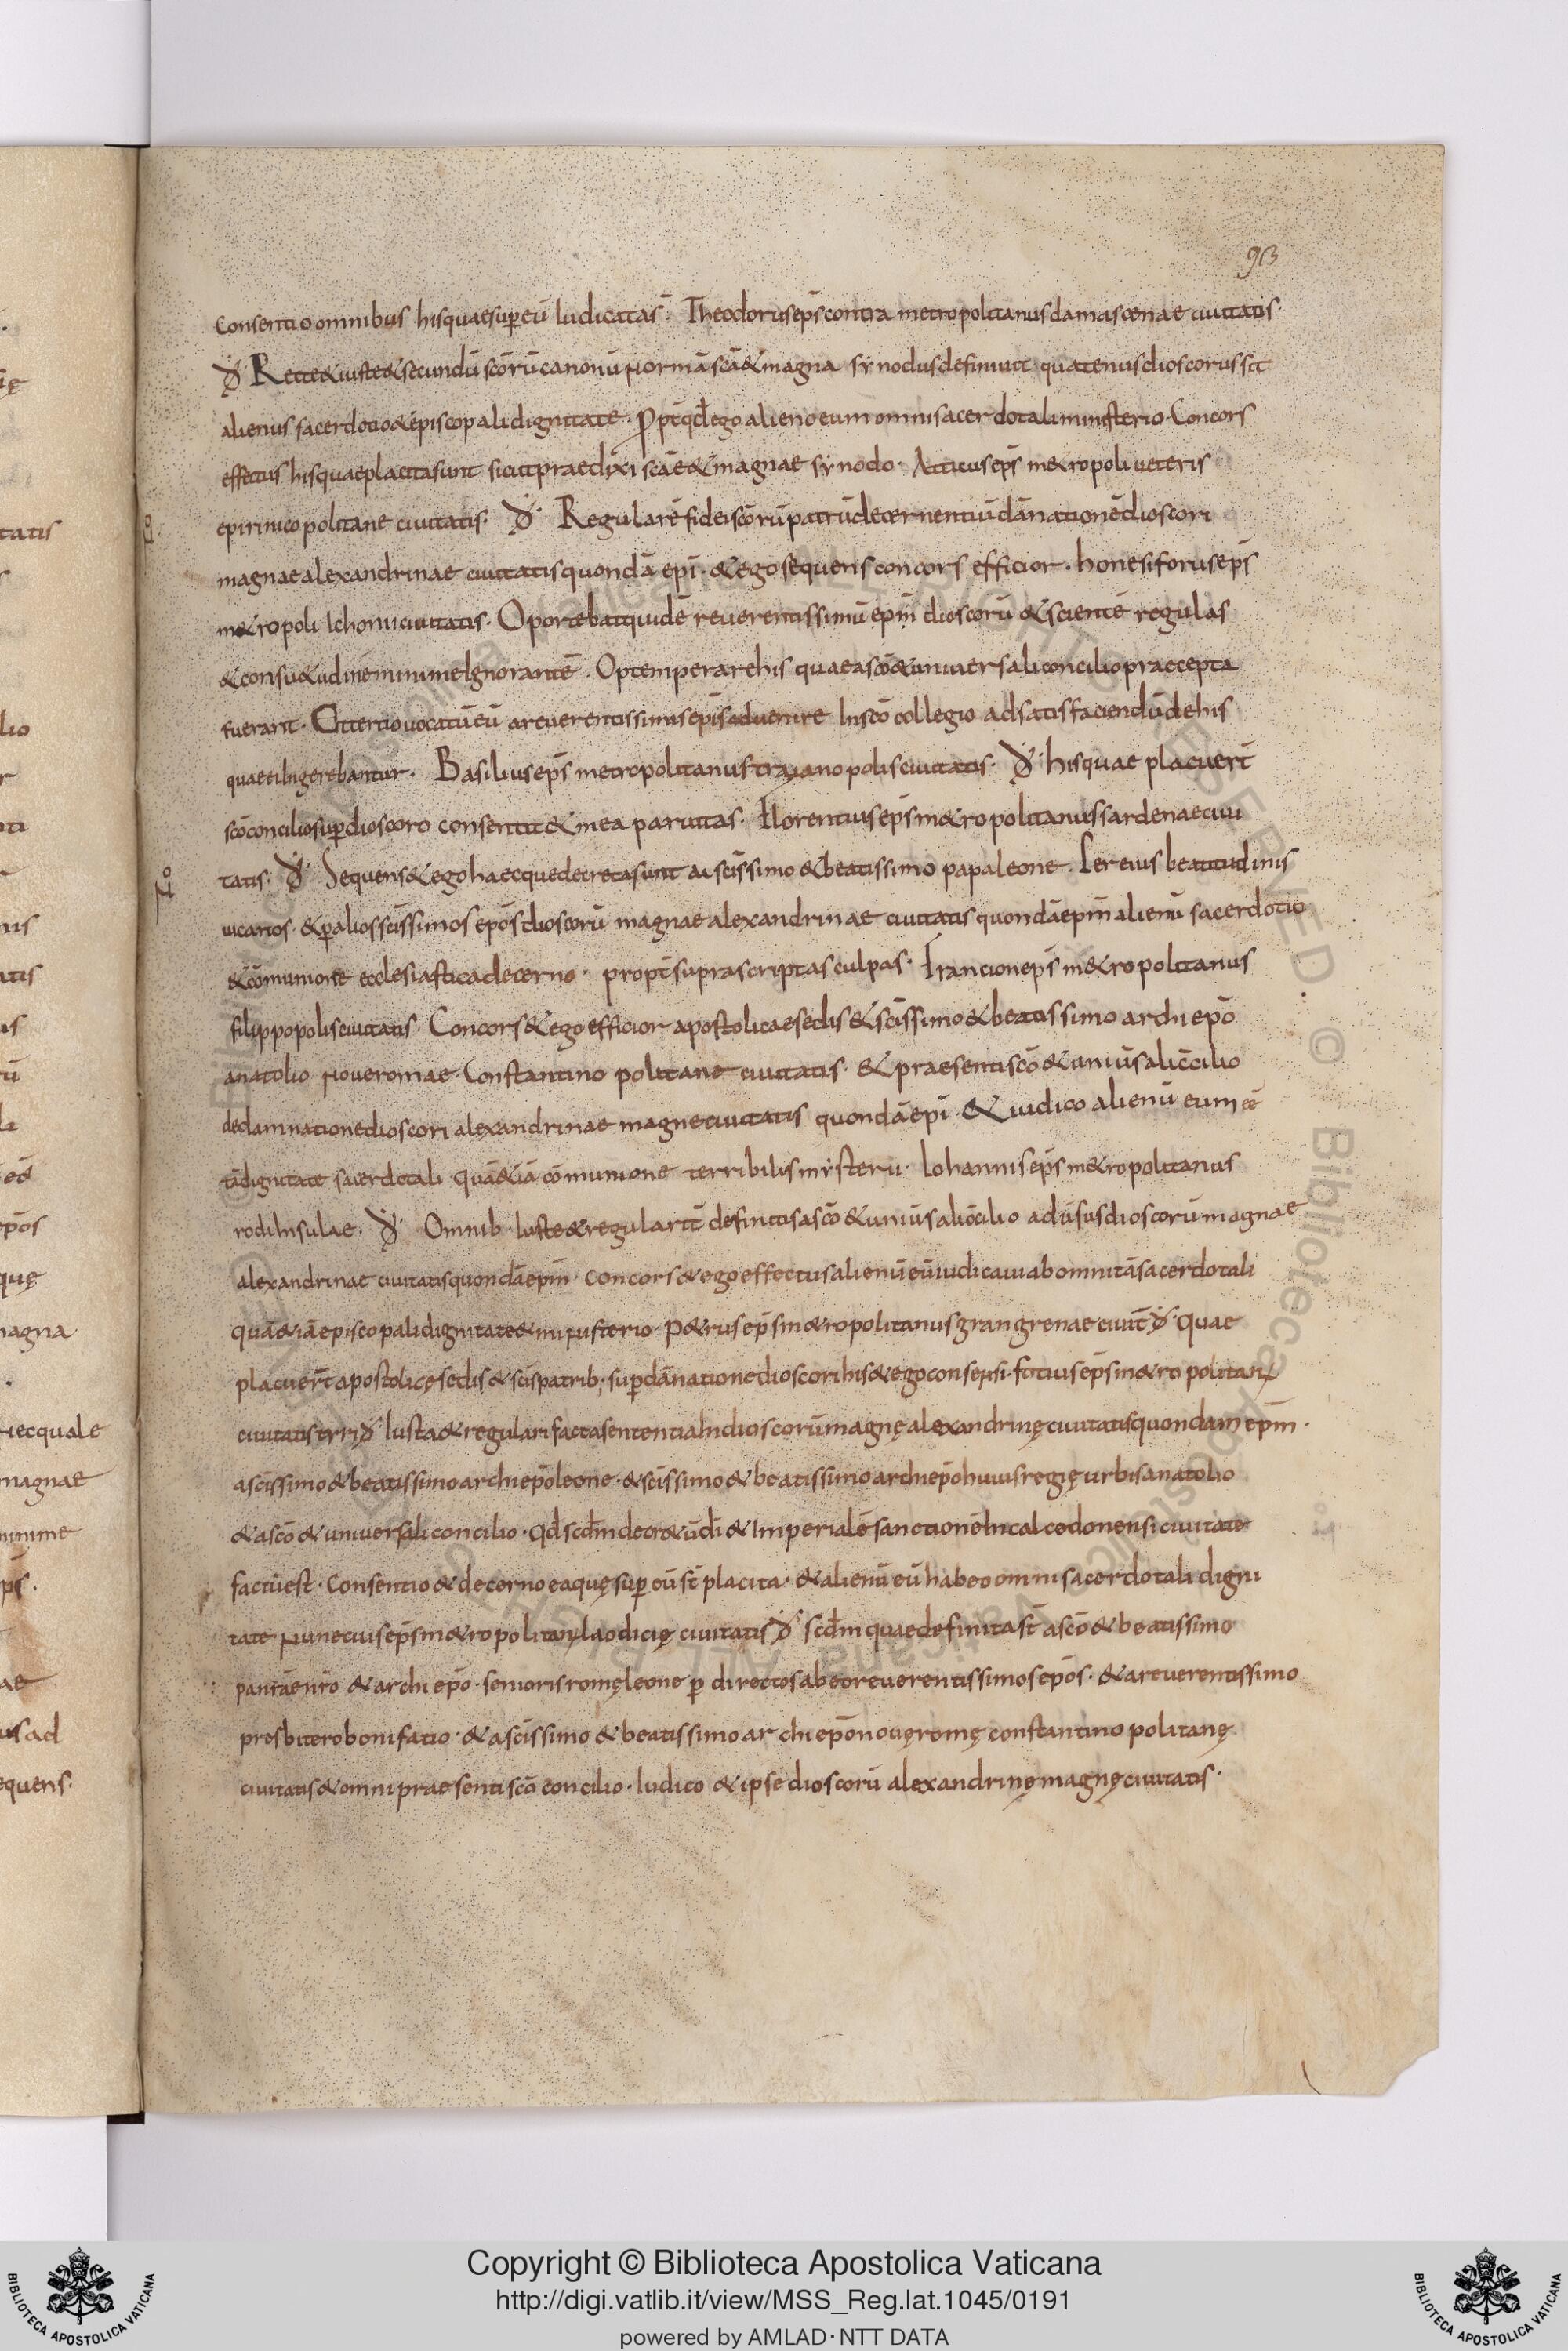 93
Consentio omnibus hisquaesup̄eū Iudicatas̄. Theodorus ep̄s contra metropolitanus damascenae ciuitatis.
D̄. Recte & iuste & secundū scōrū canonū normā scā & magna synodus definiuit quatenus dioscorus sit
alienus sacerdotio & episcopali dignitate. Propt̄ qd̄ ego alieno eum omni sacerdotali ministerio. Concors
effectus his quae placita sunt sicut praedixi scāe & magnae synodo. Atticus ep̄s m&ropoli ueteris
epiri nicopolitane ciuitatis. D̄. Regularē fidei scōrū patrū decernentiū dānationē dioscori
magnae alexandrinae ciuitatis quondā ep̄i. & ego sequens concors efficior. honesiforus ep̄s
m&ropoli Ichonii ciuitatis. Oportebat quidē reuerentissimū ep̄m dioscorū & scientē regulas
& consu&udinē minime Ignorantē. Optemperare his quae a scō & uniuersali concilio praecepta
fuerant. Et tertio uocatū eū a reuerentissimis ep̄is aduenire In scō collegio ad satisfaciendū de his
quae ei Ingerebantur. Basilius ep̄s metropolitanus trayanopolis ciuitatis. D̄. his quae placuer̄t
scō concilio sup̄ dioscoro consentit & mea paruitas. Florentius ep̄s m&ropolitanus sardenae ciui
tatis. D̄. Sequens & ego haec que decreta sunt a scīssimo & beatissimo papa leone. Per eius beatitudinis
uicarios. & p̄ alios scīssimos ep̄os dioscorū magnae alexandrinae ciuitatis quondā ep̄m alienū sacerdotio
& cōmunione ecclesiastica decerno. propt̄ suprascriptas culpas. Francion ep̄s m&ropolitanus
filippopolis ciuitatis. Concors & ego efficior apostolicae sedis & scīssimo & beatissimo archiep̄o
anatolio noue romae. Constantinopolitane ciuitatis. & praesenti scō & uniūsali c̄cilio
de damnatione dioscori alexandrinae magne ciuitatis quondā ep̄i. & iudico alienū eum eē
tā dignitate sacerdotali quā &iā cōmunione terribilis mysterii. Iohannis ep̄s m&ropolitanus
rodi Insulae. D̄. Omnib. Iuste & regularit̄ definitis a scō & uniūsali c̄cilio aduersus dioscorū magnae
alexandrinae ciuitatis quondā ep̄m. concors & ego effectus alienū eū iudicaui ab omni tā sacerdotali
quā &iā episcopali dignitate & ministerio. P&rus ep̄s m&ropolitanus grangrenae ciuit̄ D̄. Quae
placuer̄t apostolicę sedis & scīs patrib. sup̄ dānatione dioscori his & ego consensi. fotius ep̄s m&ropolitanus
ciuitatis tyri D̄. Iusta & regulari facta sententia In dioscorū magnę alexandrinę ciuitatis quondam ep̄m.
a scīssimo & beatissimo archiep̄o leone. & scīssimo & beatissimo archiep̄o huius regię urbis anatolio
& a scō & uniuersali concilio. Qd̄ scd̄m decr&ū di & Imperialē sanctionē In calcedonensi ciuitate
factū est. Consentio & decerno ea quę sup̄ eū st̄ placita. & alienū eū habeo omni sacerdotali digni
tate nunecius ep̄s m&ropolitanus laodicię ciuitatis D̄. scd̄m quae definita st̄ a scō & beatissimo
& archiep̄o. senioris romę leone p̄ directos ab eo reuerentissimos ep̄os. & a reuerentissimo
presbitero bonifatio. & a scīssimo & beatissimo archiep̄o nouę romę constantinopolitanę
ciuitatis & omni praesenti scō concilio. Iudico & ipse dioscorū alexandrinę magnę ciuitatis.
Copyright © Biblioteca Apostolica Vaticana
http://digi.vatlib.it/view/MSS_Reg.lat.1045/0191
powered by AMLAD·NTT DATA